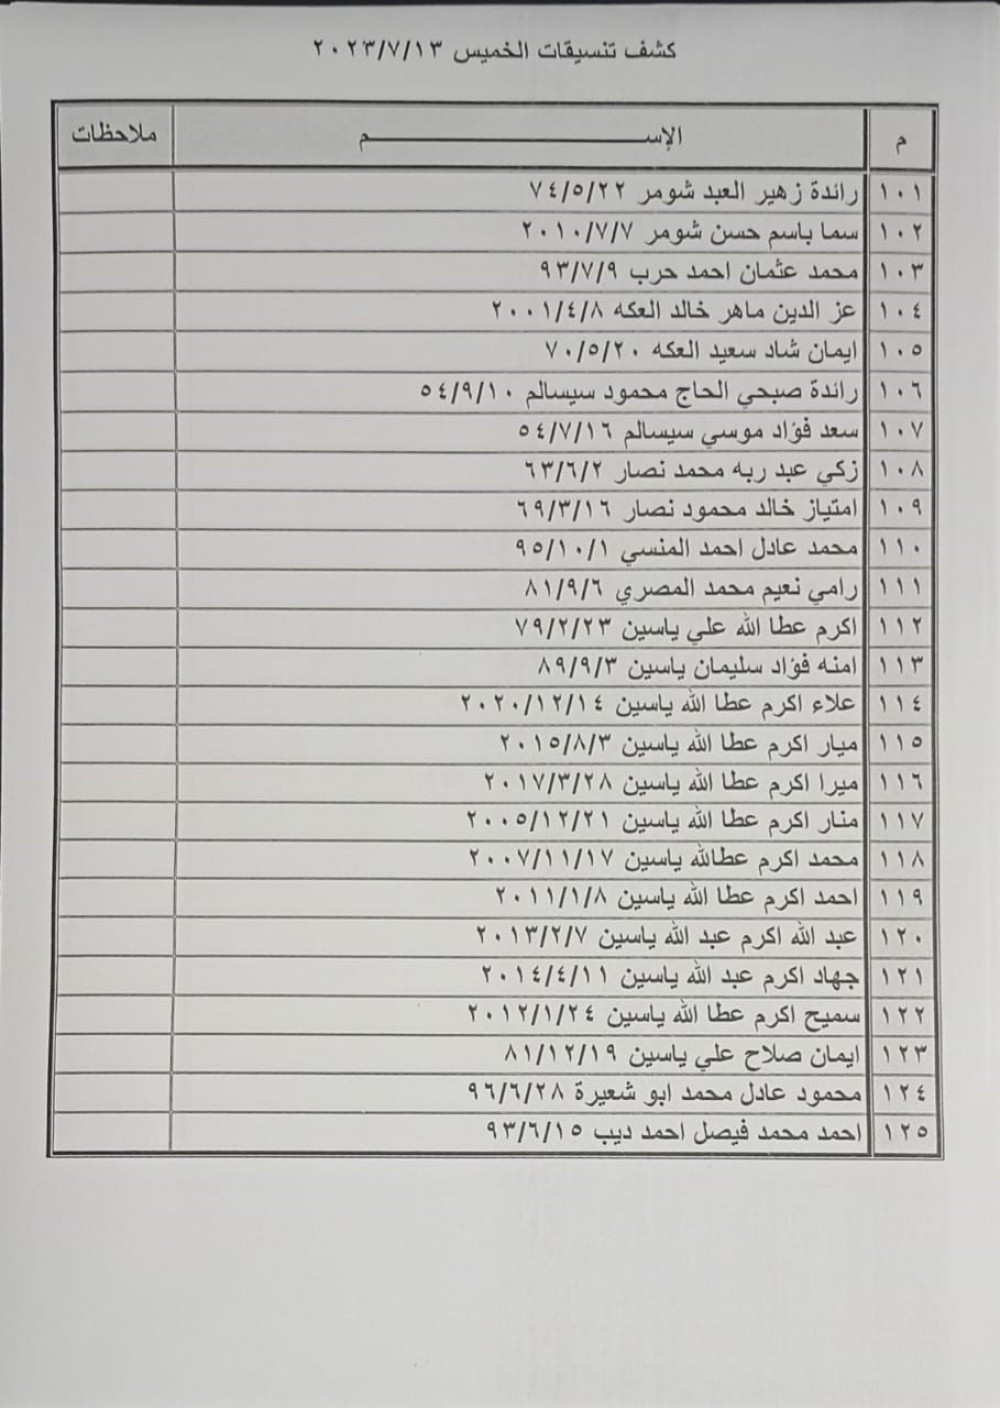 كشف تنسيقات الخميس ٢٠٢٣/٧/١٣
م الإســـــــــم ملاحظات
١٠١ رائدة زهير العبد شومر ٧٤/٥/٢٢
١٠٢ سما باسم حسن شومر ٢٠١٠/٧/٧
١٠٣ محمد عثمان احمد حرب ٩٣/٧/٩
١٠٤ عز الدين ماهر خالد العكه ٢٠٠١/٤/٨
١٠٥ ايمان شاد سعيد العكه ٧٠/٥/٢٠
١٠٦ رائدة صبحي الحاج محمود سيسالم ٥٤/٩/١٠
١٠٧ سعد فؤاد موسي سيسالم ٥٤/٧/١٦
١٠٨ زكي عبد ربه محمد نصار ٦٣/٦/٢
١٠٩ امتياز خالد محمود نصار ٦٩/٣/١٦
١١٠ محمد عادل احمد المنسي ٩٥/١٠/١
١١١ رامي نعيم محمد المصري ٨١/٩/٦
١١٢ اكرم عطا الله علي ياسين ٧٩/٢/٢٣
١١٣ امنه فؤاد سليمان ياسين ٨٩/٩/٣
١١٤ علاء اكرم عطا الله ياسين ٢٠٢٠/١٢/١٤
١١٥ ميار اكرم عطا الله ياسين ٢٠١٥/٨/٣
١١٦ ميرا اكرم عطا الله ياسين ٢٠١٧/٣/٢٨
١١٧ منار اكرم عطا الله ياسين ٢٠٠٥/١٢/٢١
١١٨ محمد اكرم عطالله ياسين ٢٠٠٧/١١/١٧
١١٩ احمد اكرم عطا الله ياسين ٢٠١١/١/٨
١٢٠ عبد الله اكرم عبد الله ياسين ٢٠١٣/٢/٧
١٢١ جهاد اكرم عبد الله ياسين ٢٠١٤/٤/١١
١٢٢ سميح اكرم عطا الله ياسين ٢٠١٢/١/٢٤
١٢٣ ايمان صلاح علي ياسين ٨١/١٢/١٩
١٢٤ محمود عادل محمد ابو شعيرة ٩٦/٦/٢٨
١٢٥ احمد محمد فيصل احمد ديب ٩٣/٦/١٥